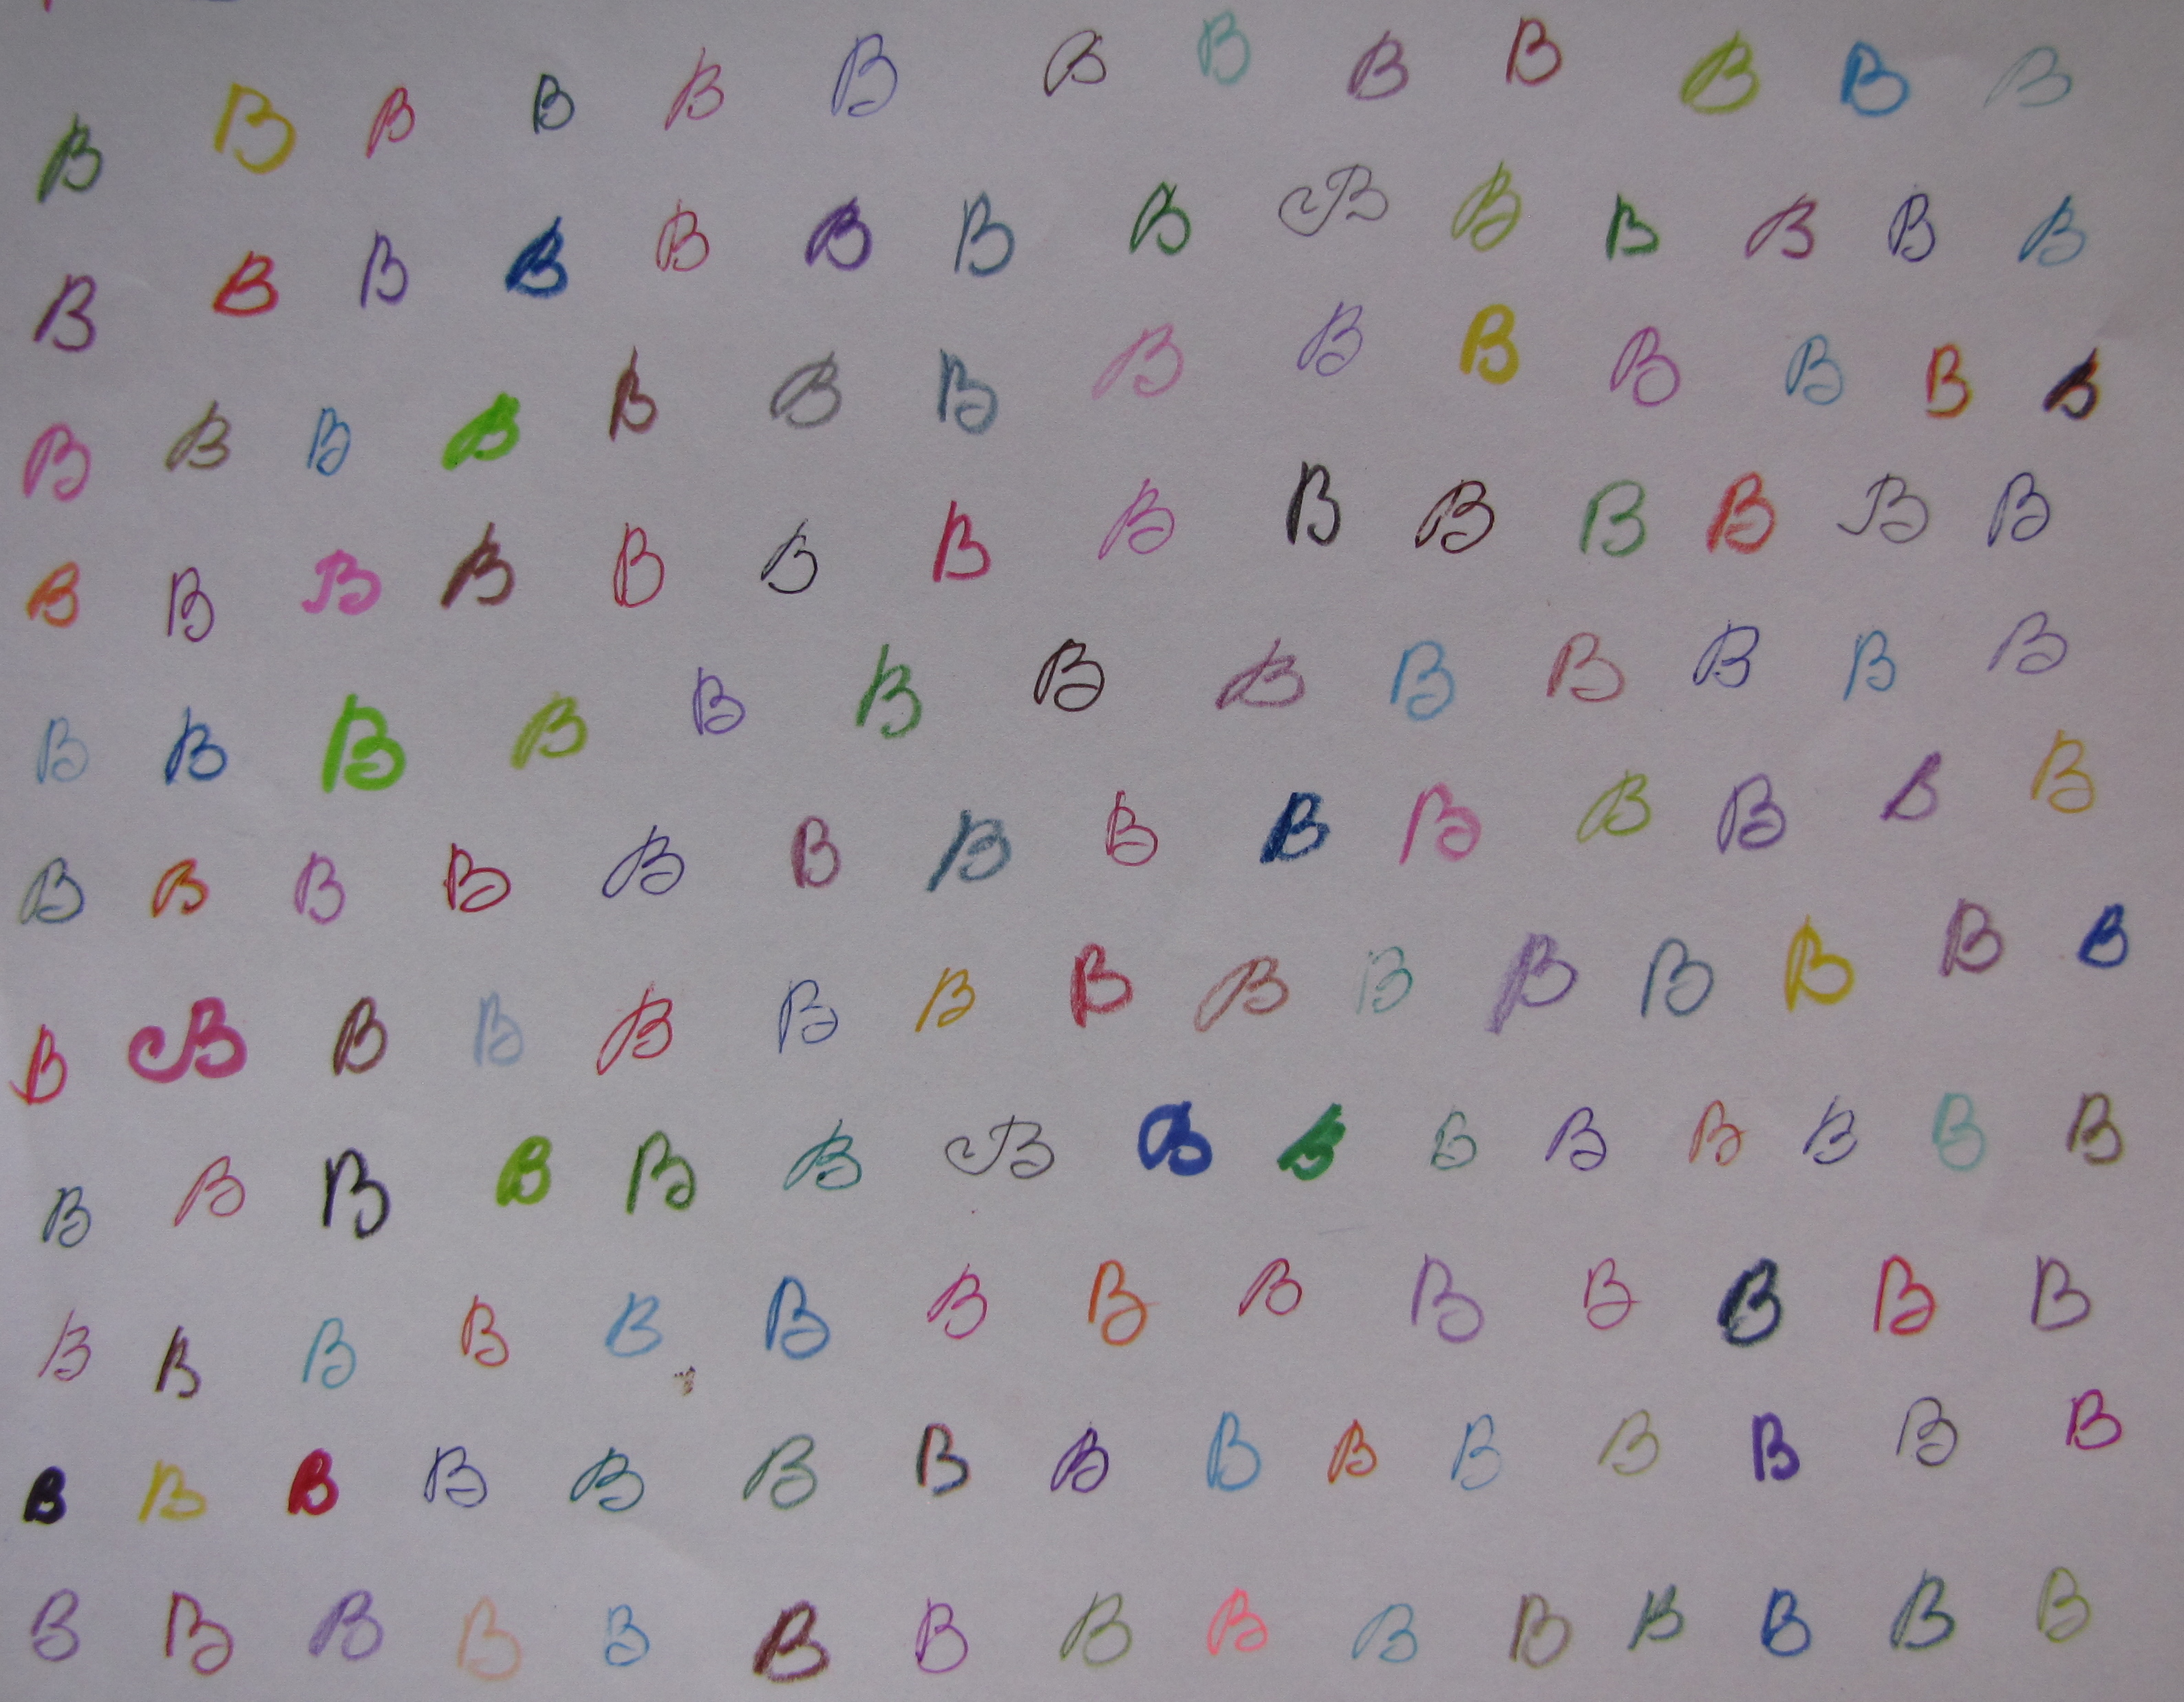 B B B B B B B B B B B B B
B B B B B B B B B B B B B B
B B B B B B B B B B B B B B
B B B B B B B B B B B B B B
B B B B B B B B B B B B B
B B B B B B B B B B B B B B
B B B B B B B B B B B B B B B
B B B B B B B B B B B B B B B
B B B B B B B B B B B B B B
B B B B B B B B B B B B B B B
B B B B B B B B B B B B B B B